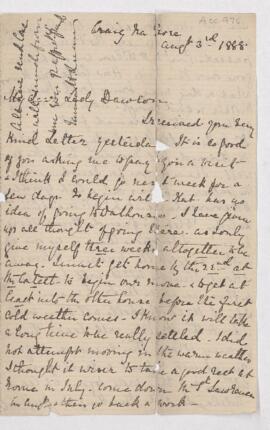 Acc 976
Craig na Gore
Augt 3rd 1888
My dear Lady Dawson
I received your very
kind Letter yesterday. It is so good
of you asking me to pay you a visit
I think I could go next week for a
few days to begin with. That has no
idea of going to Dalhousie. I have given
up all thought of going there. as I only
give myself three weeks altogether to be
away. I must get home by the 22nd at
the latest to begin our move. & to get at
least into the other house before the first
cold weather comes. I know it will take
a long time to be really settled. I did
not attempt moving in the warm weather
I thought it wiser to take a good rest at
home in July. come down the St Lawrence
in Augt & then go back & work —